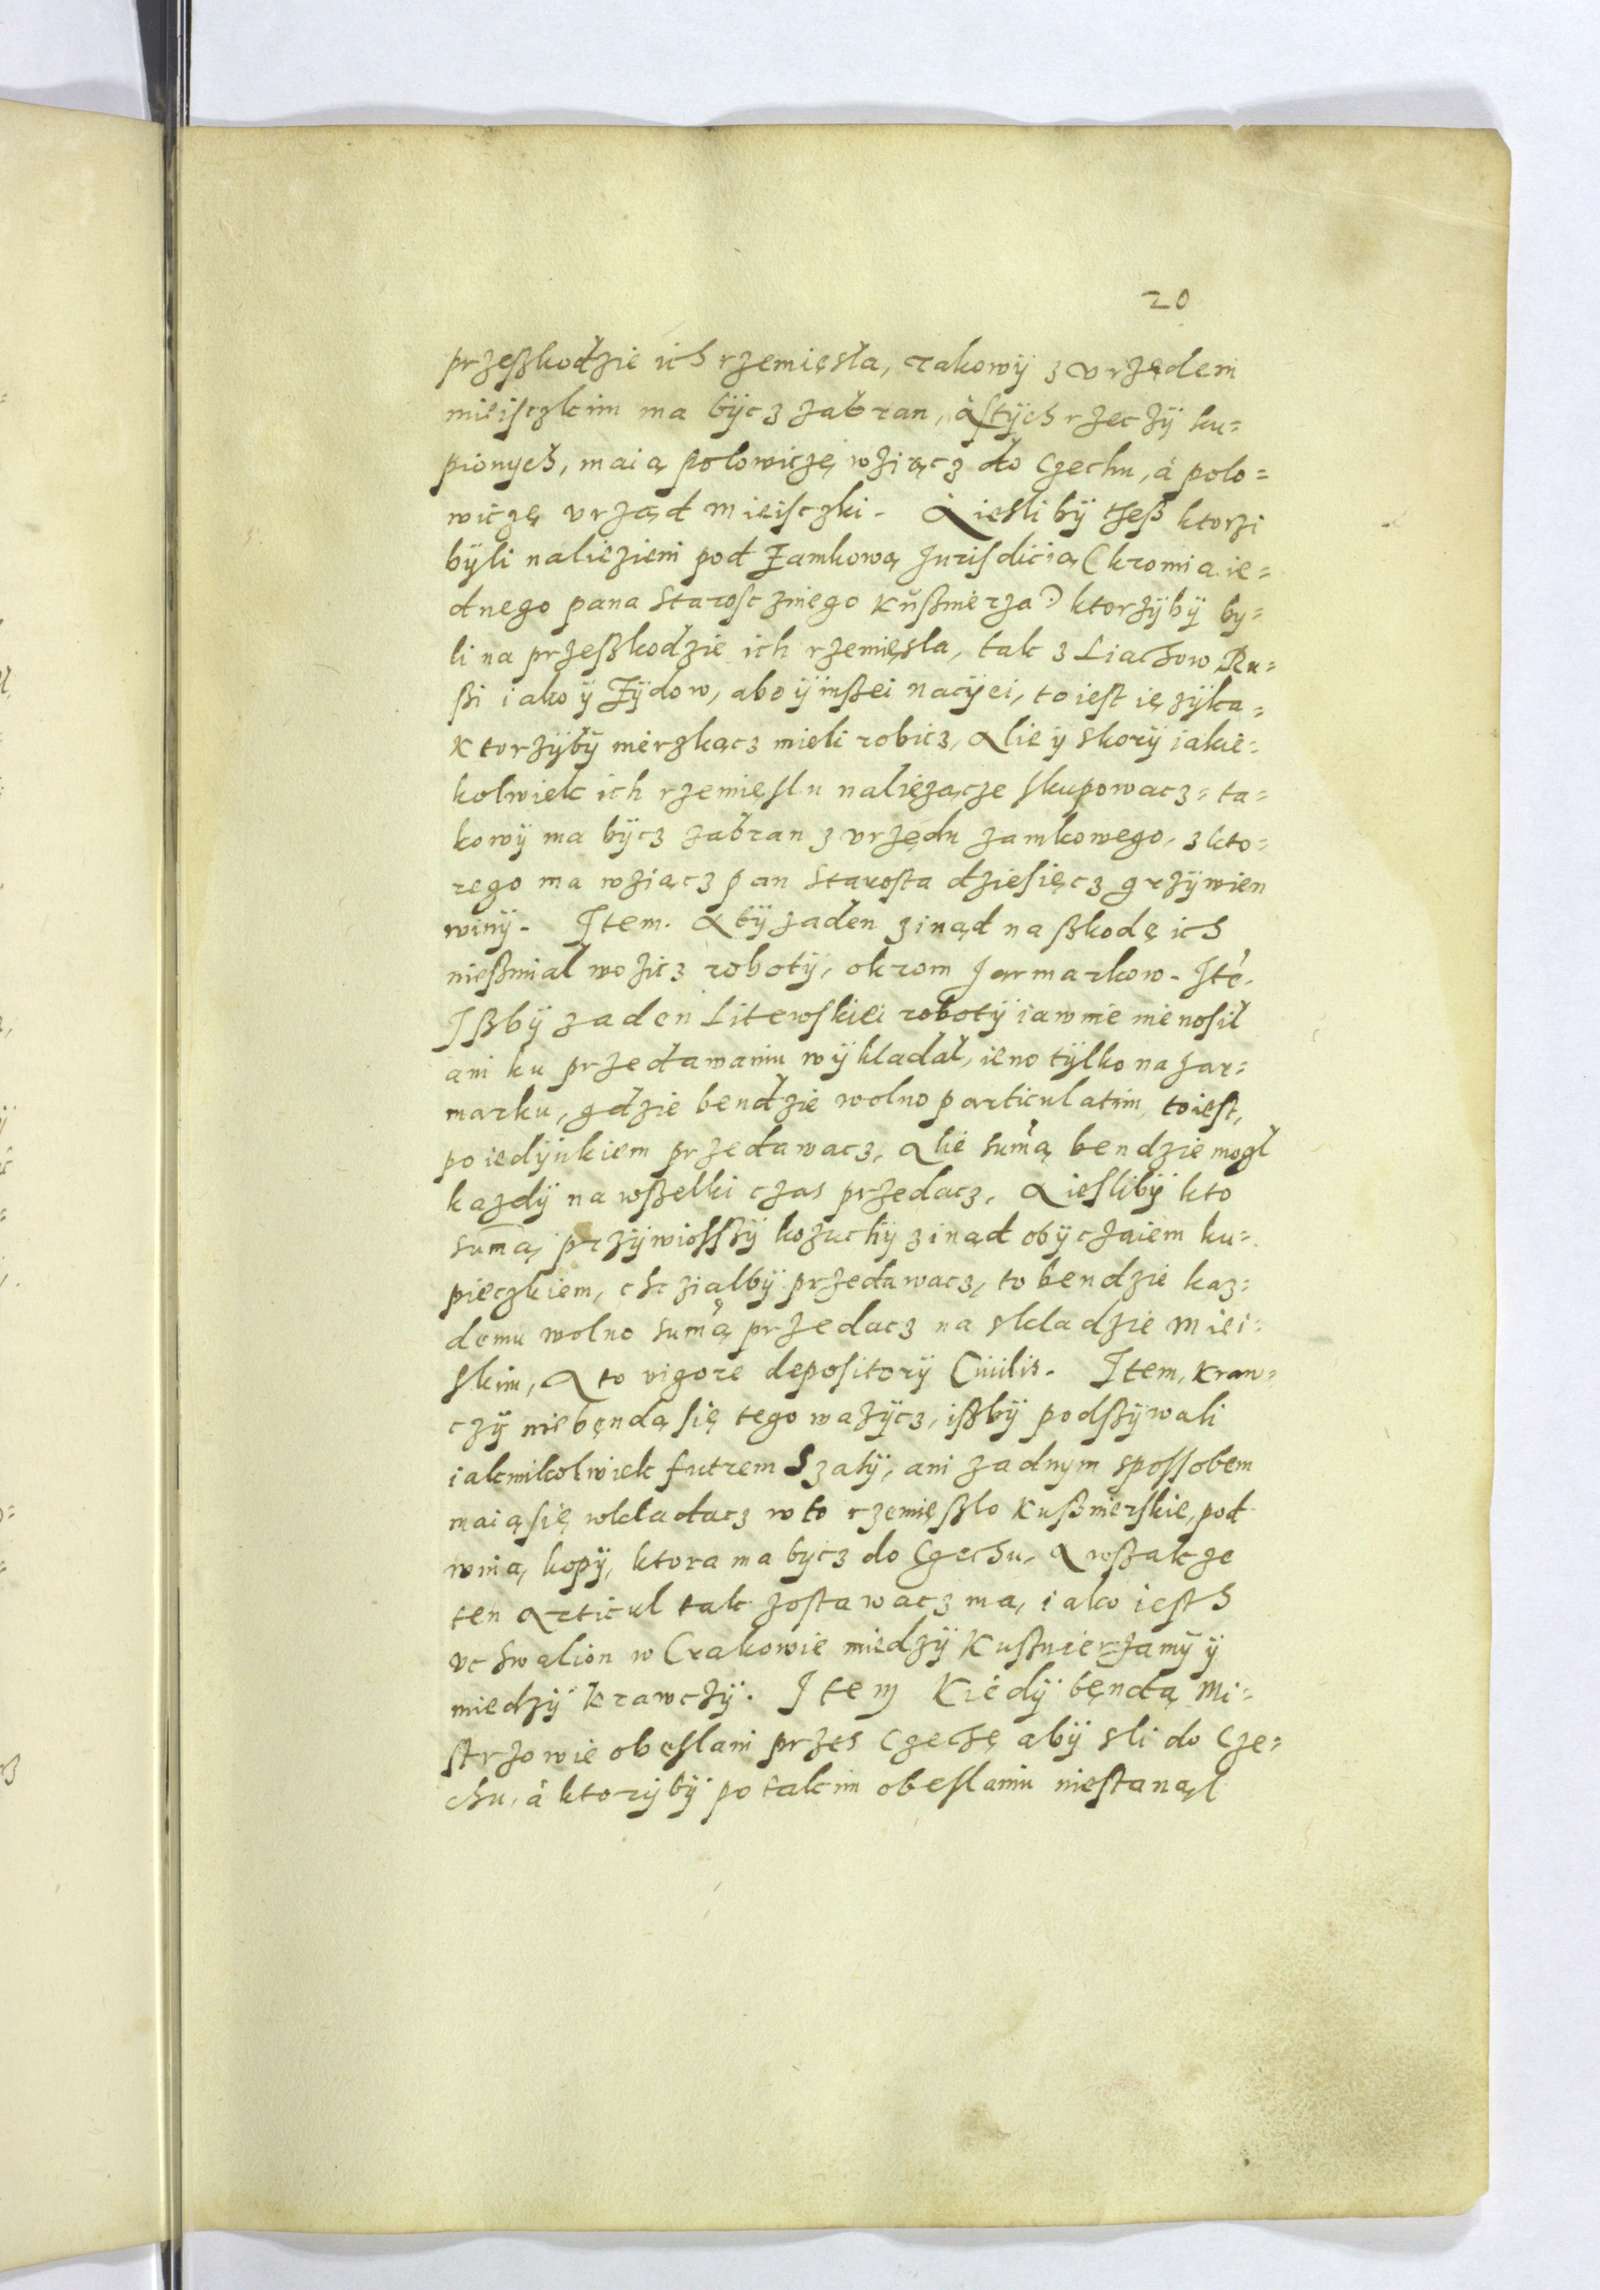 20
przeszkodzie ich rzemięsła, takowÿ z vrzędem
mieisczkim ma bÿcz zabran, a stÿch rzeczÿ ku=
pionych, maią polowiczę wziącz do Czechu, á polo=
wiczę vrząd Mieisczki. A iesliby tesz ktorzi
bÿli nalieziemi pod Zamkową Jurisdicią (kromia ie=
dnego pana Starosczinego Kuszmerza) ktorzÿbÿ by=
li na przeszkodzie ich rzemięsla, tak z Liachow Ru=
szi iako ÿ Zÿdow, abo ÿ inszei nacÿei, to iest ięzÿka=
Ktorzÿbÿ mieszkacz mieli robicz, Alie y skorÿ iakie=
kolwiek ich rzemięslu nalieżącze skupowacz= ta=
kowÿ ma bÿcz zabran z vrzędu zamkowego, z kto=
rego ma wziącz pan Starosta dziesięcz grzÿwien
winÿ. Item. Abÿ zaden zinąd na szkodę ich
nieszmial wozicz robotÿ, okrom Jarmarkow. Ite.
Iszbÿ zaden Litewskiei robotÿ iawnie nie nosił
ani ku przedawaniu wÿkladał, ieno tÿlko na Jar=
marku, gdzie bendzie wolno particulatim, to iest,
poiedÿnkiem przedawacz, Alie sumą bendzie mogł
kazdÿ na wszelki czas przedacz, A ieslibÿ kto
sumą przÿwioszszÿ kozuchÿ zinąd obÿczaiem ku=
pieczkiem, chcziąlbÿ przedawacz, to bendzie kaz=
demu wolno sumą przedacz na skladzie Miei=
skim, A to vigore depositorÿ Ciuilis. Item, Kraw=
czÿ niebęndą się tego wazÿcz, iszbÿ podszÿwali
iakmikolwiek futrem Szatÿ, ani zadnym spossobem
maią się wkladacz w to rzemięszlo Kuszmierskie, pod
winą kopÿ, ktora ma bycz do Czechu, A wszakze
ten Articul tak zostawacz ma, iako iesth
vchwalion w Crakowie miedzÿ Kusznierzamÿ y
miedzÿ Krawczÿ. Item Kiedÿ bęndą Mi=
strzowie obęslani przes Czechę abÿ sli do Cze=
chu, á ktorÿbÿ po takim obeslaniu niestanął